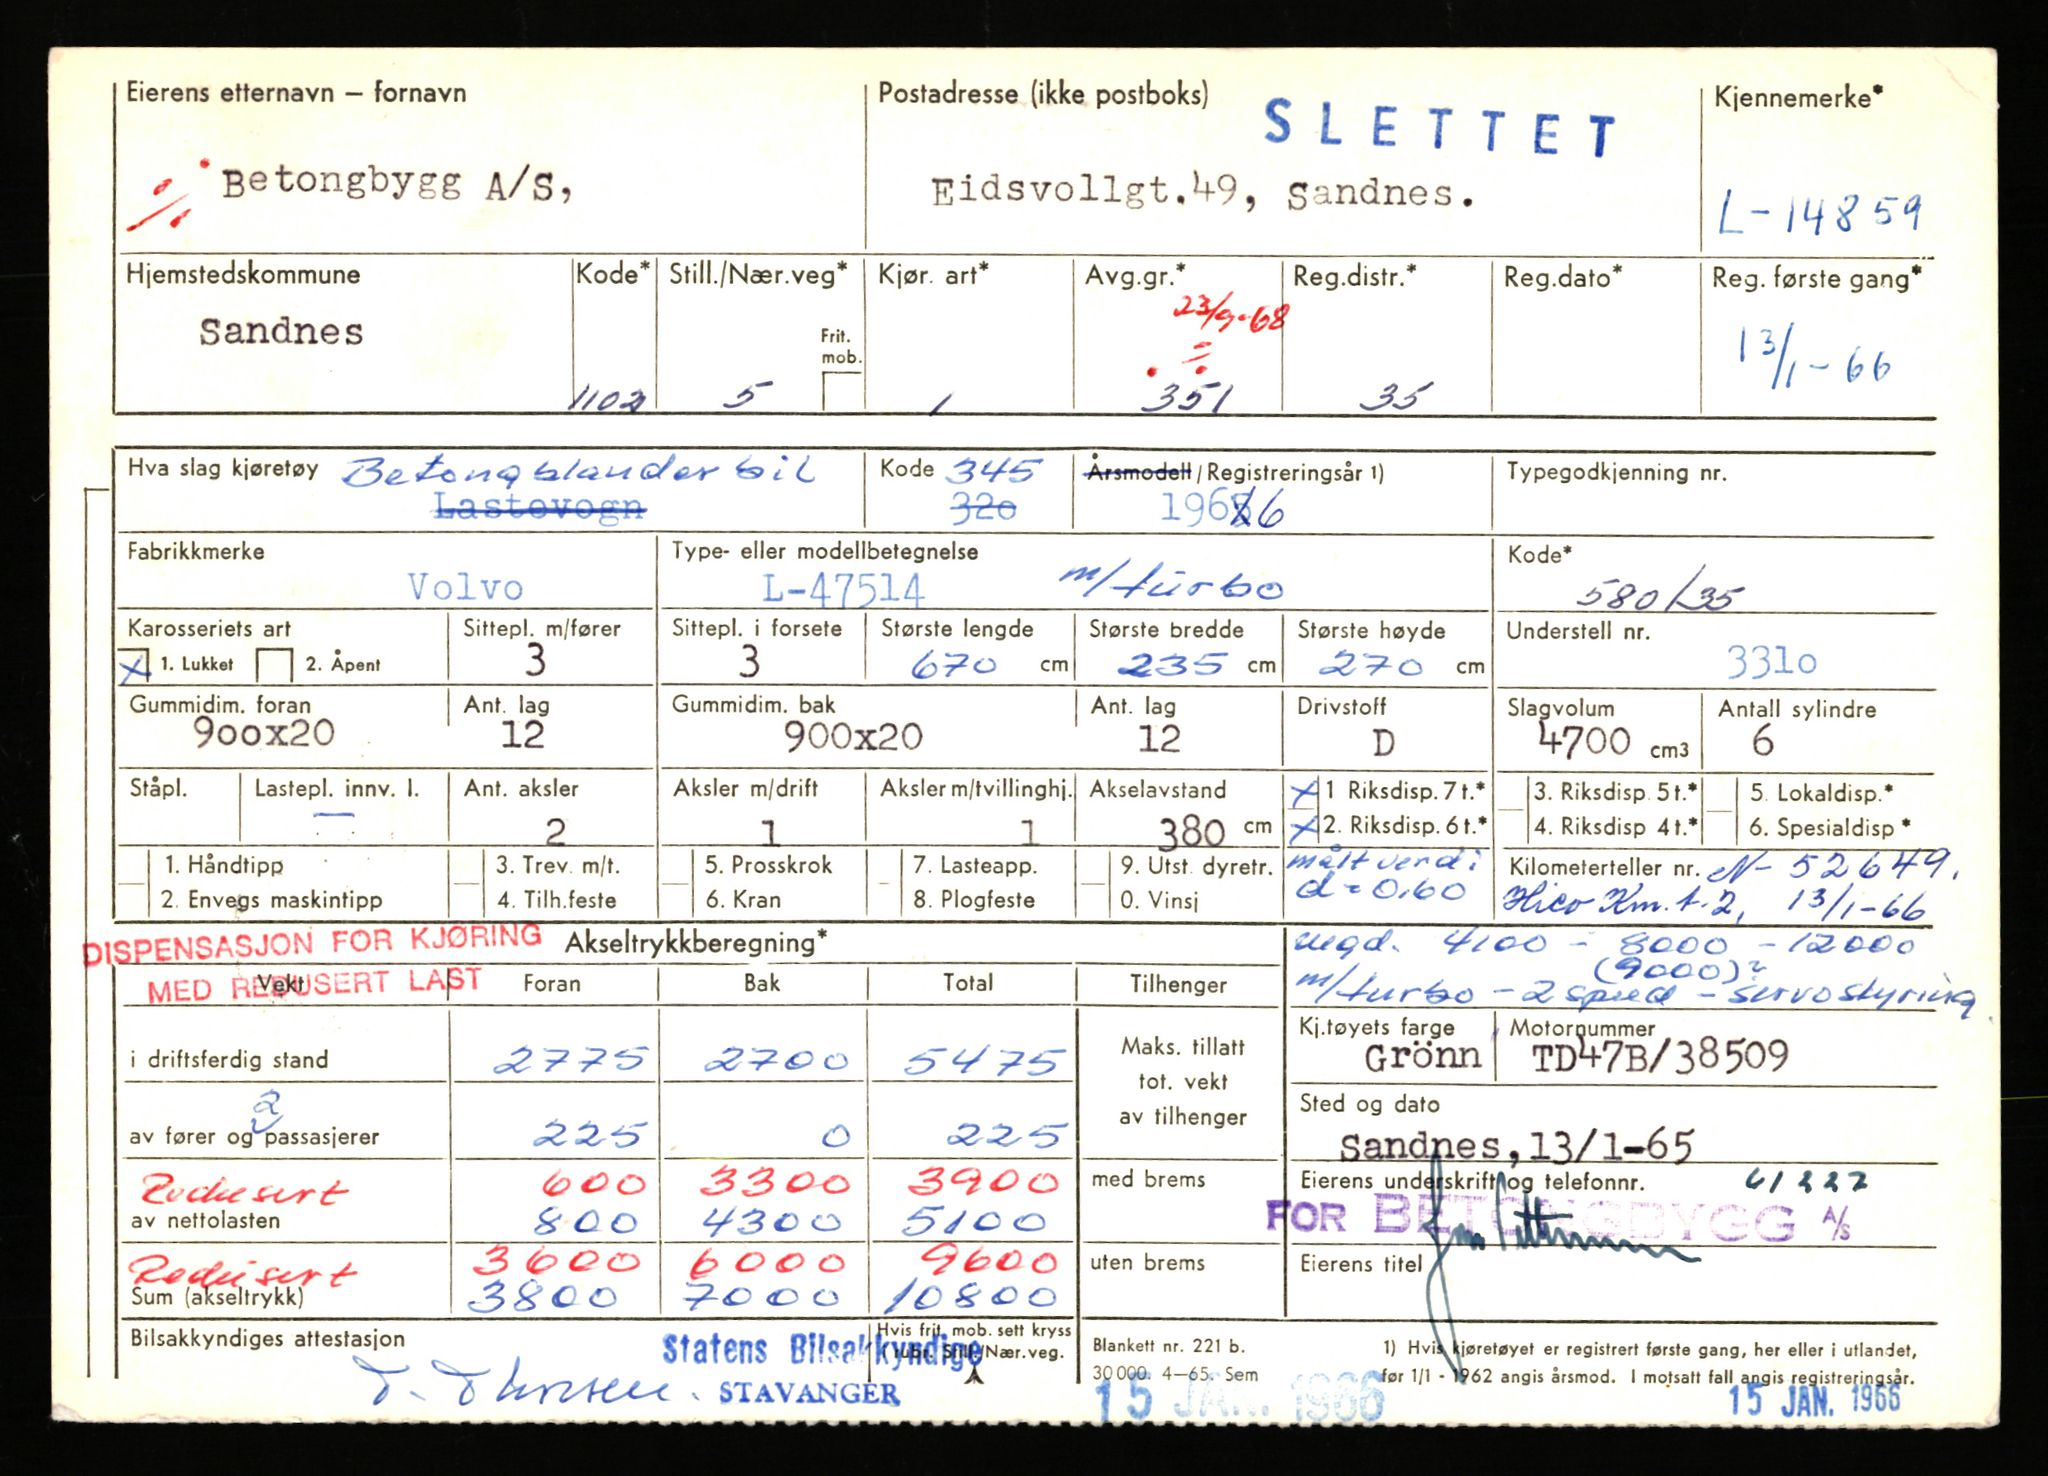 Eierens etternavn – fornavn
Postadresse (ikke postboks)
SLETTET
Kjennemerke*
Betongbygg A/S,
Eidsvollgt.49, Sandnes.
L-14859
Hjemstedskommune
Kode*
Still./Nær.veg*
Kjør. art*
Avg.gr.*
Reg.distr.*
Reg.dato*
Reg. første gang*
23/9-68
Sandnes
Frit. mob.
13/1-66
1102
5
1
351
35
Hva slag kjøretøy Betongblanderbil
Kode 345
Årsmodell/Registreringsår 1)
Typegodkjenning nr.
Lastevogn
320
196 6
Fabrikkmerke
Type- eller modellbetegnelse
Kode*
Volvo
L-47514 m/turbo
580/35
Karosseriets art
Sittepl. m/fører
Sittepl. i forsete
Største lengde
Største bredde
Største høyde
Understell nr.
x 1. Lukket 2. Åpent
3
3
670 cm
235 cm
270 cm
3310
Gummidim. foran
Ant. lag
Gummidim. bak
Ant. lag
Drivstoff
Slagvolum
Antall sylindre
900x20
12
900x20
12
D
4700 cm3
6
Ståpl.
Lastepl. innv. l.
Ant. aksler
Aksler m/drift
Aksler m/tvillinghj.
Akselavstand
x 1 Riksdisp. 7 t.*
3. Riksdisp. 5 t.*
5. Lokaldisp.*
—
2
1
1
380 cm
x 2. Riksdisp. 6 t.*
4. Riksdisp 4 t.*
6. Spesialdisp*
1. Håndtipp
3. Trev. m/t.
5. Prosskrok
7. Lasteapp.
9. Utst. dyretr.
målt verdi
Kilometerteller nr. N-52649.
2. Envegs maskintipp
4. Tilh.feste
6. Kran
8. Plogfeste
0. Vinsj
d=0,60
Hico Km.t.2, 13/1-66
DISPENSASJON FOR KJØRING
Akseltrykkberegning*
4100 - 8000 - 12000
(9000)
MED REDUSERT LAST
Vekt
Foran
Bak
Total
Tilhenger
m/turbo - 2 speed - servostyring
Kj.tøyets farge
Motornummer
i driftsferdig stand
2775
2700
5475
Maks. tillatt
tot. vekt
av tilhenger
Grönn
TD47B/38509
Sted og dato
2
av fører og passasjerer
225
0
225
Sandnes,13/1-65
Redusert
600
3300
3900
med brems
Eierens underskrift og telefonnr. 61227
av nettolasten
800
4300
5100
FOR BETONGBYGG A/S
Redusert
3600
6000
9600
uten brems
Eierens titel
Sum (akseltrykk)
3800
7000
10800
Bilsakkyndiges attestasjon
Hvis frit. mob. sett kryss
i rubr. Still./Nær.veg.
Statens Bilsakkyndige
STAVANGER
Blankett nr. 221 b.
30 000. 4–65. Sem
1) Hvis kjøretøyet er registrert første gang, her eller i utlandet,
før 1/1 - 1962 angis årsmod. I motsatt fall angis registreringsår.
15 JAN. 1966
15 JAN. 1966